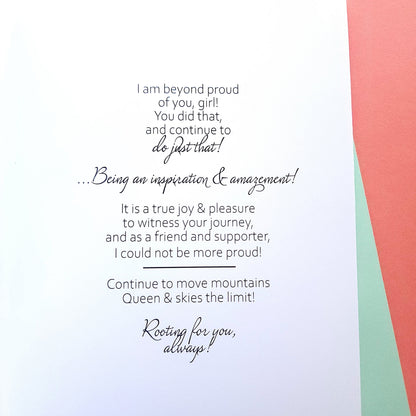 I am beyond proud
of you, girl!
You did that,
and continue to
do just that!
...Being an inspiration & amazement!
It is a true joy & pleasure
to witness your journey,
and as a friend and supporter,
I could not be more proud!
Continue to move mountains
Queen & skies the limit!
Rooting for you,
always!